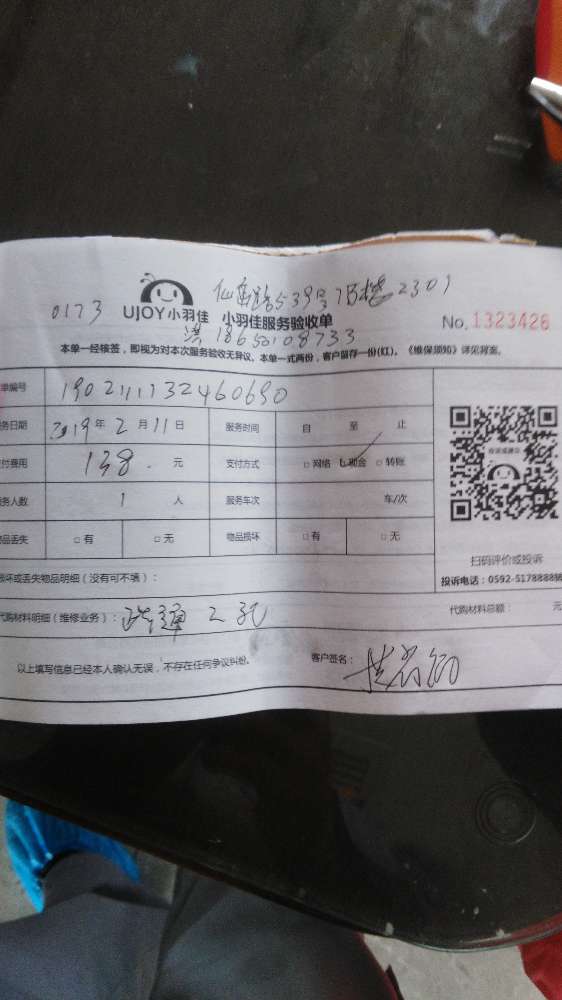 仙岳路539号7B楼2301
0173 UJOY小羽佳 小羽佳服务验收单 No.1323426
洪 18650108733
本单一经核签，即视为对本次服务验收无异议。本单一式两份，客户留存一份(红)。《维保须知》详见背面。
单编号 1902111132460690
务日期 2019年2月11日 服务时间 自 至 止
付费用 138. 元 支付方式 □网络 □现金 □转账
务人数 1 人 服务车次 车/次
品丢失 □有 □无 物品损坏 □有 □无
扫码评价或投诉
损坏或丢失物品明细（没有可不填）：
投诉电话：0592-5178888转
代购材料明细（维修业务）：疏通2孔 代购材料总额： 元
以上填写信息已经本人确认无误，不存在任何争议纠纷。 客户签名：